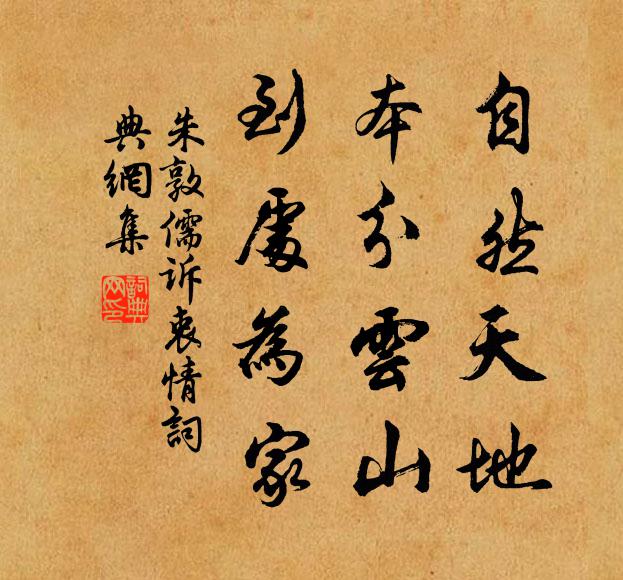 自然天地
本分雲山
到處為家
朱敦儒訴衷情詞
典網集
詞典
網印